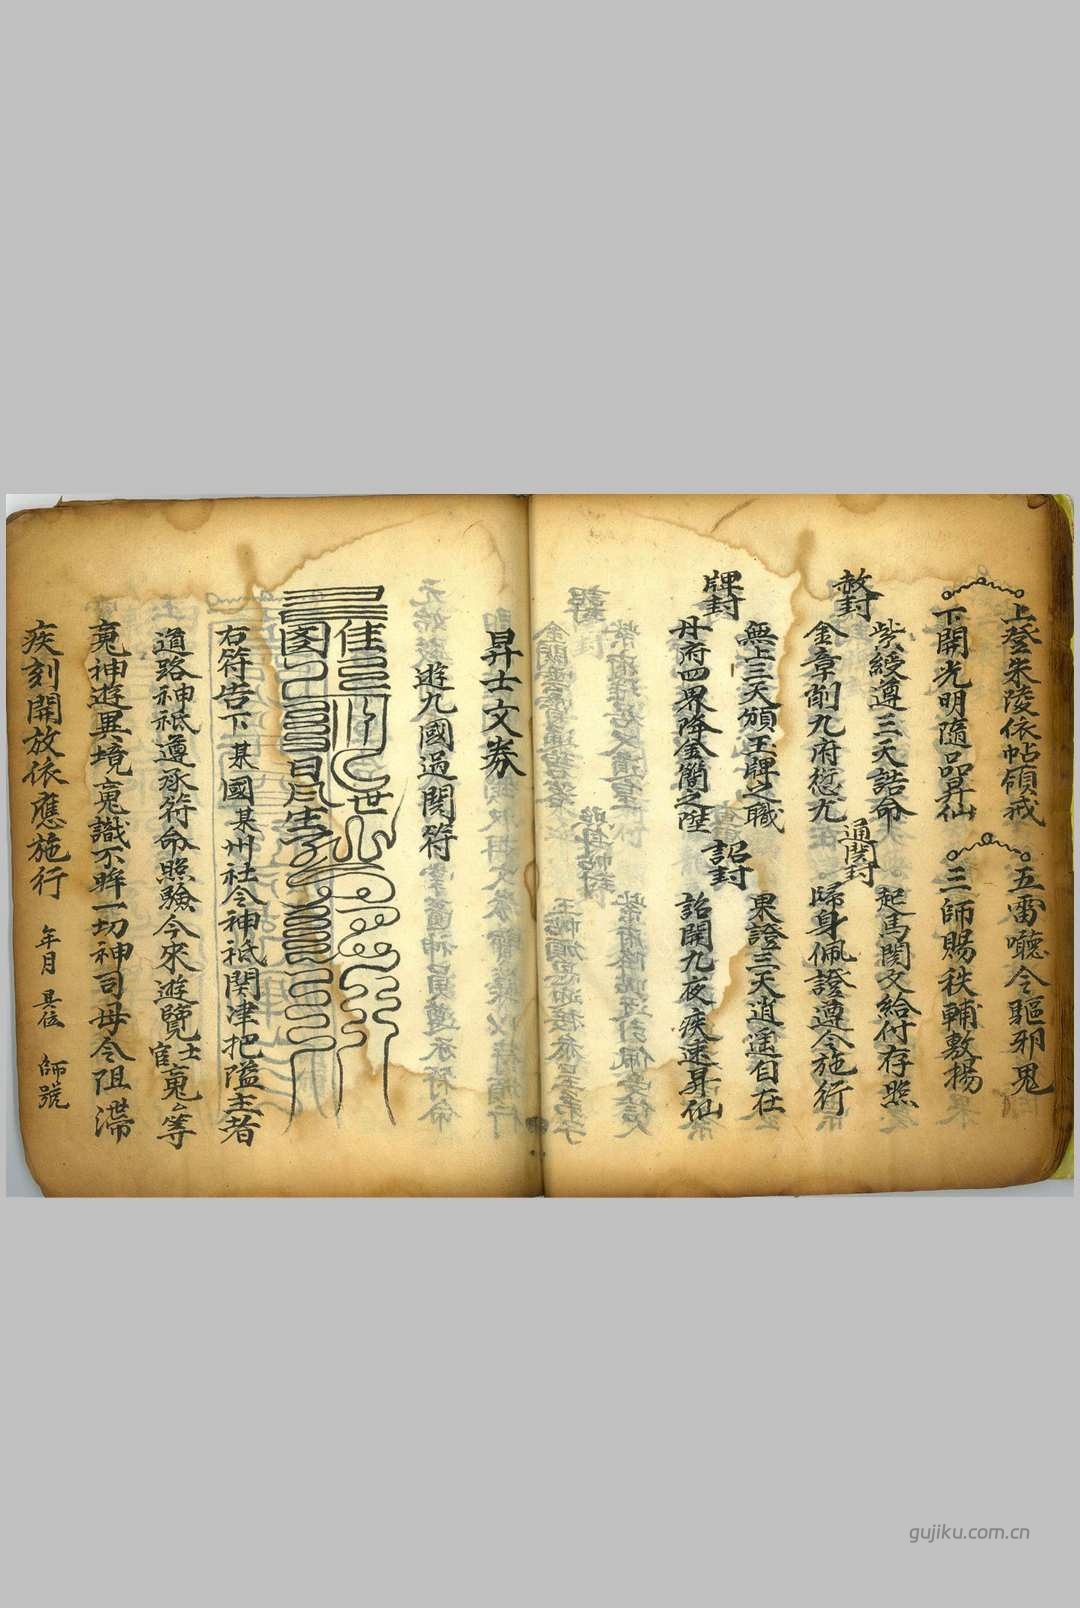 上登朱陵依帖領戒
下開光明隨品昇仙
五雷嚈令驅邪鬼
三師賜秩輔敷揚
赦封
紫綬遵三天誥命
金章削九府愆尤
通関封
起馬関文給付存照
歸身佩證遵令施行
牌封
無上三天頒玉牌之職
丹府四界降金簡之陞
詔封
果證三天逍遥自在
詔開九夜疾速昇仙
昇士文券
遊九國過関符
右符告下某國某州社令神祇関津把隘主者
道路神祇遵承符命照驗今來遊覽士官䰟等
䰟神遊異境䰟識不眸一切神司毋令阻滯
疾刻開放依應施行 年月 具位 師號
gujiku.com.cn